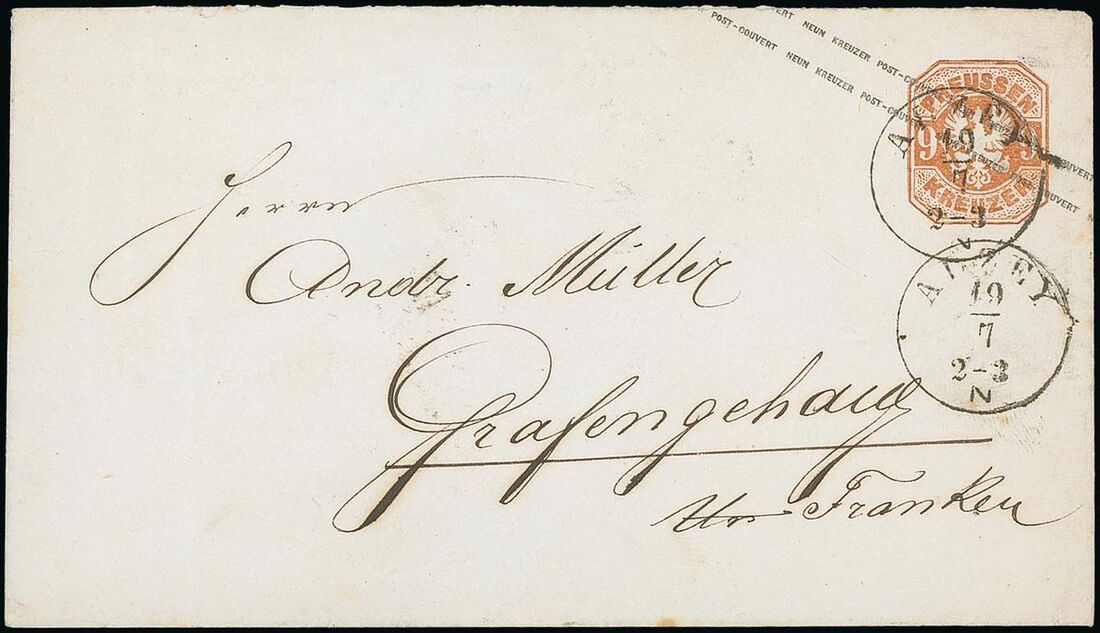 POST-COUVERT NEUN KREUZER POST-COUVERT
POST-COUVERT NEUN KREUZER POST-COUVERT
PREUSSEN
9 9
KREUZER
ALZEY
19
7
2-3
N
ALZEY
19
7
2-3
N
Herrn
Andr. Müller
Grafengehaig
Franken